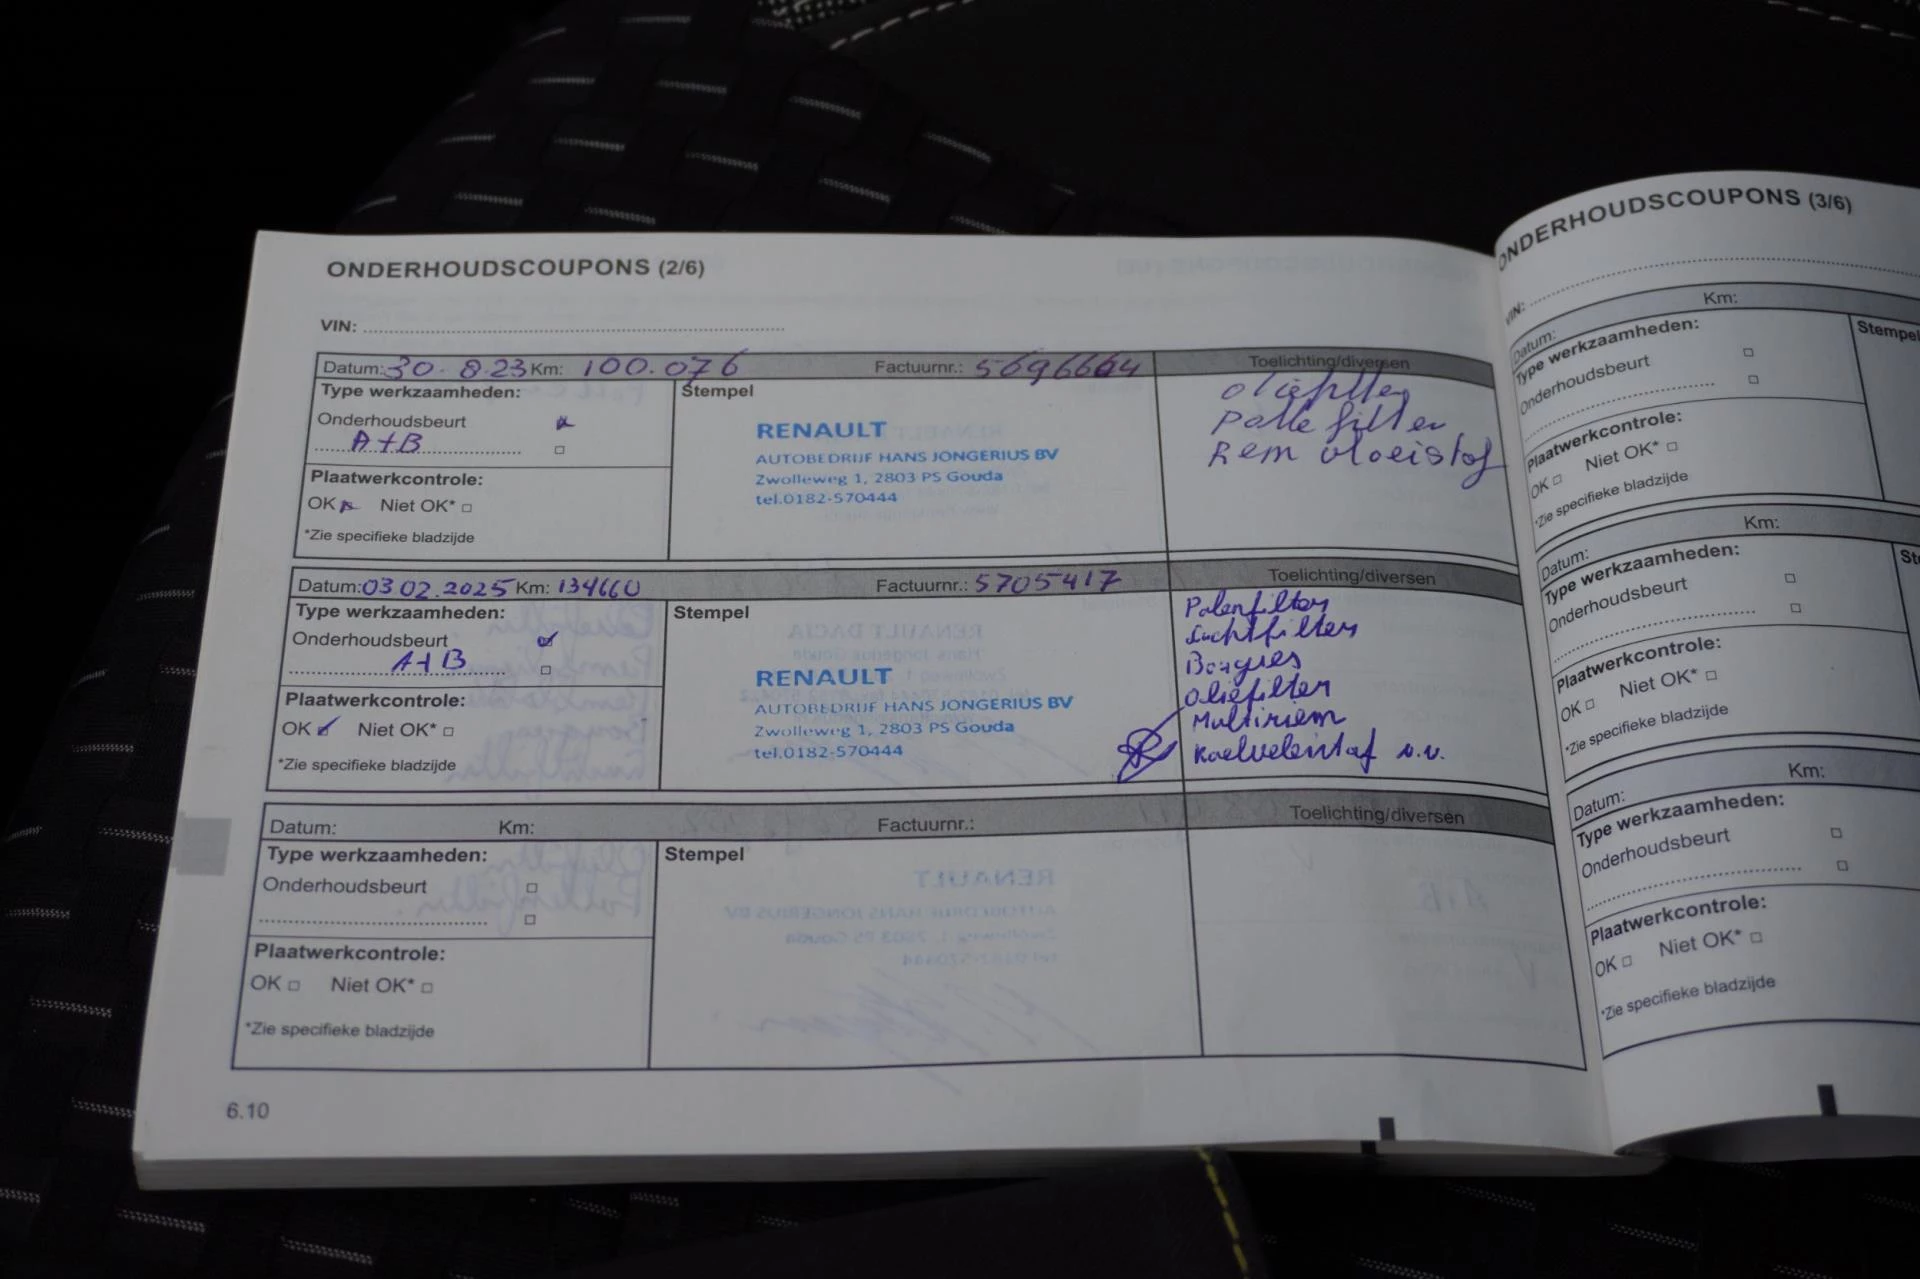 ONDERHOUDSCOUPONS (2/6)
VIN:
Datum: 30-8-23 Km: 100.076 Factuurnr.: 5696664 Toelichting/diversen
Type werkzaamheden:
Onderhoudsbeurt
A+B
Plaatwerkcontrole:
OK Niet OK*
*Zie specifieke bladzijde
Stempel
RENAULT
AUTOBEDRIJF HANS JONGERIUS BV
Zwolleweg 1, 2803 PS Gouda
tel.0182-570444
oliefilter
Polle filter
Rem vloeistof
Datum: 03.02.2025 Km: 134660 Factuurnr.: 5705417 Toelichting/diversen
Type werkzaamheden:
Onderhoudsbeurt
A+B
Plaatwerkcontrole:
OK Niet OK*
*Zie specifieke bladzijde
Stempel
RENAULT
AUTOBEDRIJF HANS JONGERIUS BV
Zwolleweg 1, 2803 PS Gouda
tel.0182-570444
Polenfilter
Luchtfilter
Bougies
Oliefilter
Multiriem
Koelvloeistof
Datum: Km: Factuurnr.: Toelichting/diversen
Type werkzaamheden:
Onderhoudsbeurt
Plaatwerkcontrole:
OK Niet OK*
*Zie specifieke bladzijde
Stempel
6.10
ONDERHOUDSCOUPONS (3/6)
VIN:
Datum: Km:
Type werkzaamheden:
Onderhoudsbeurt
Plaatwerkcontrole:
OK Niet OK*
*Zie specifieke bladzijde
Stempel
Datum: Km:
Type werkzaamheden:
Onderhoudsbeurt
Plaatwerkcontrole:
OK Niet OK*
*Zie specifieke bladzijde
St
Datum: Km:
Type werkzaamheden:
Onderhoudsbeurt
Plaatwerkcontrole:
OK Niet OK*
*Zie specifieke bladzijde